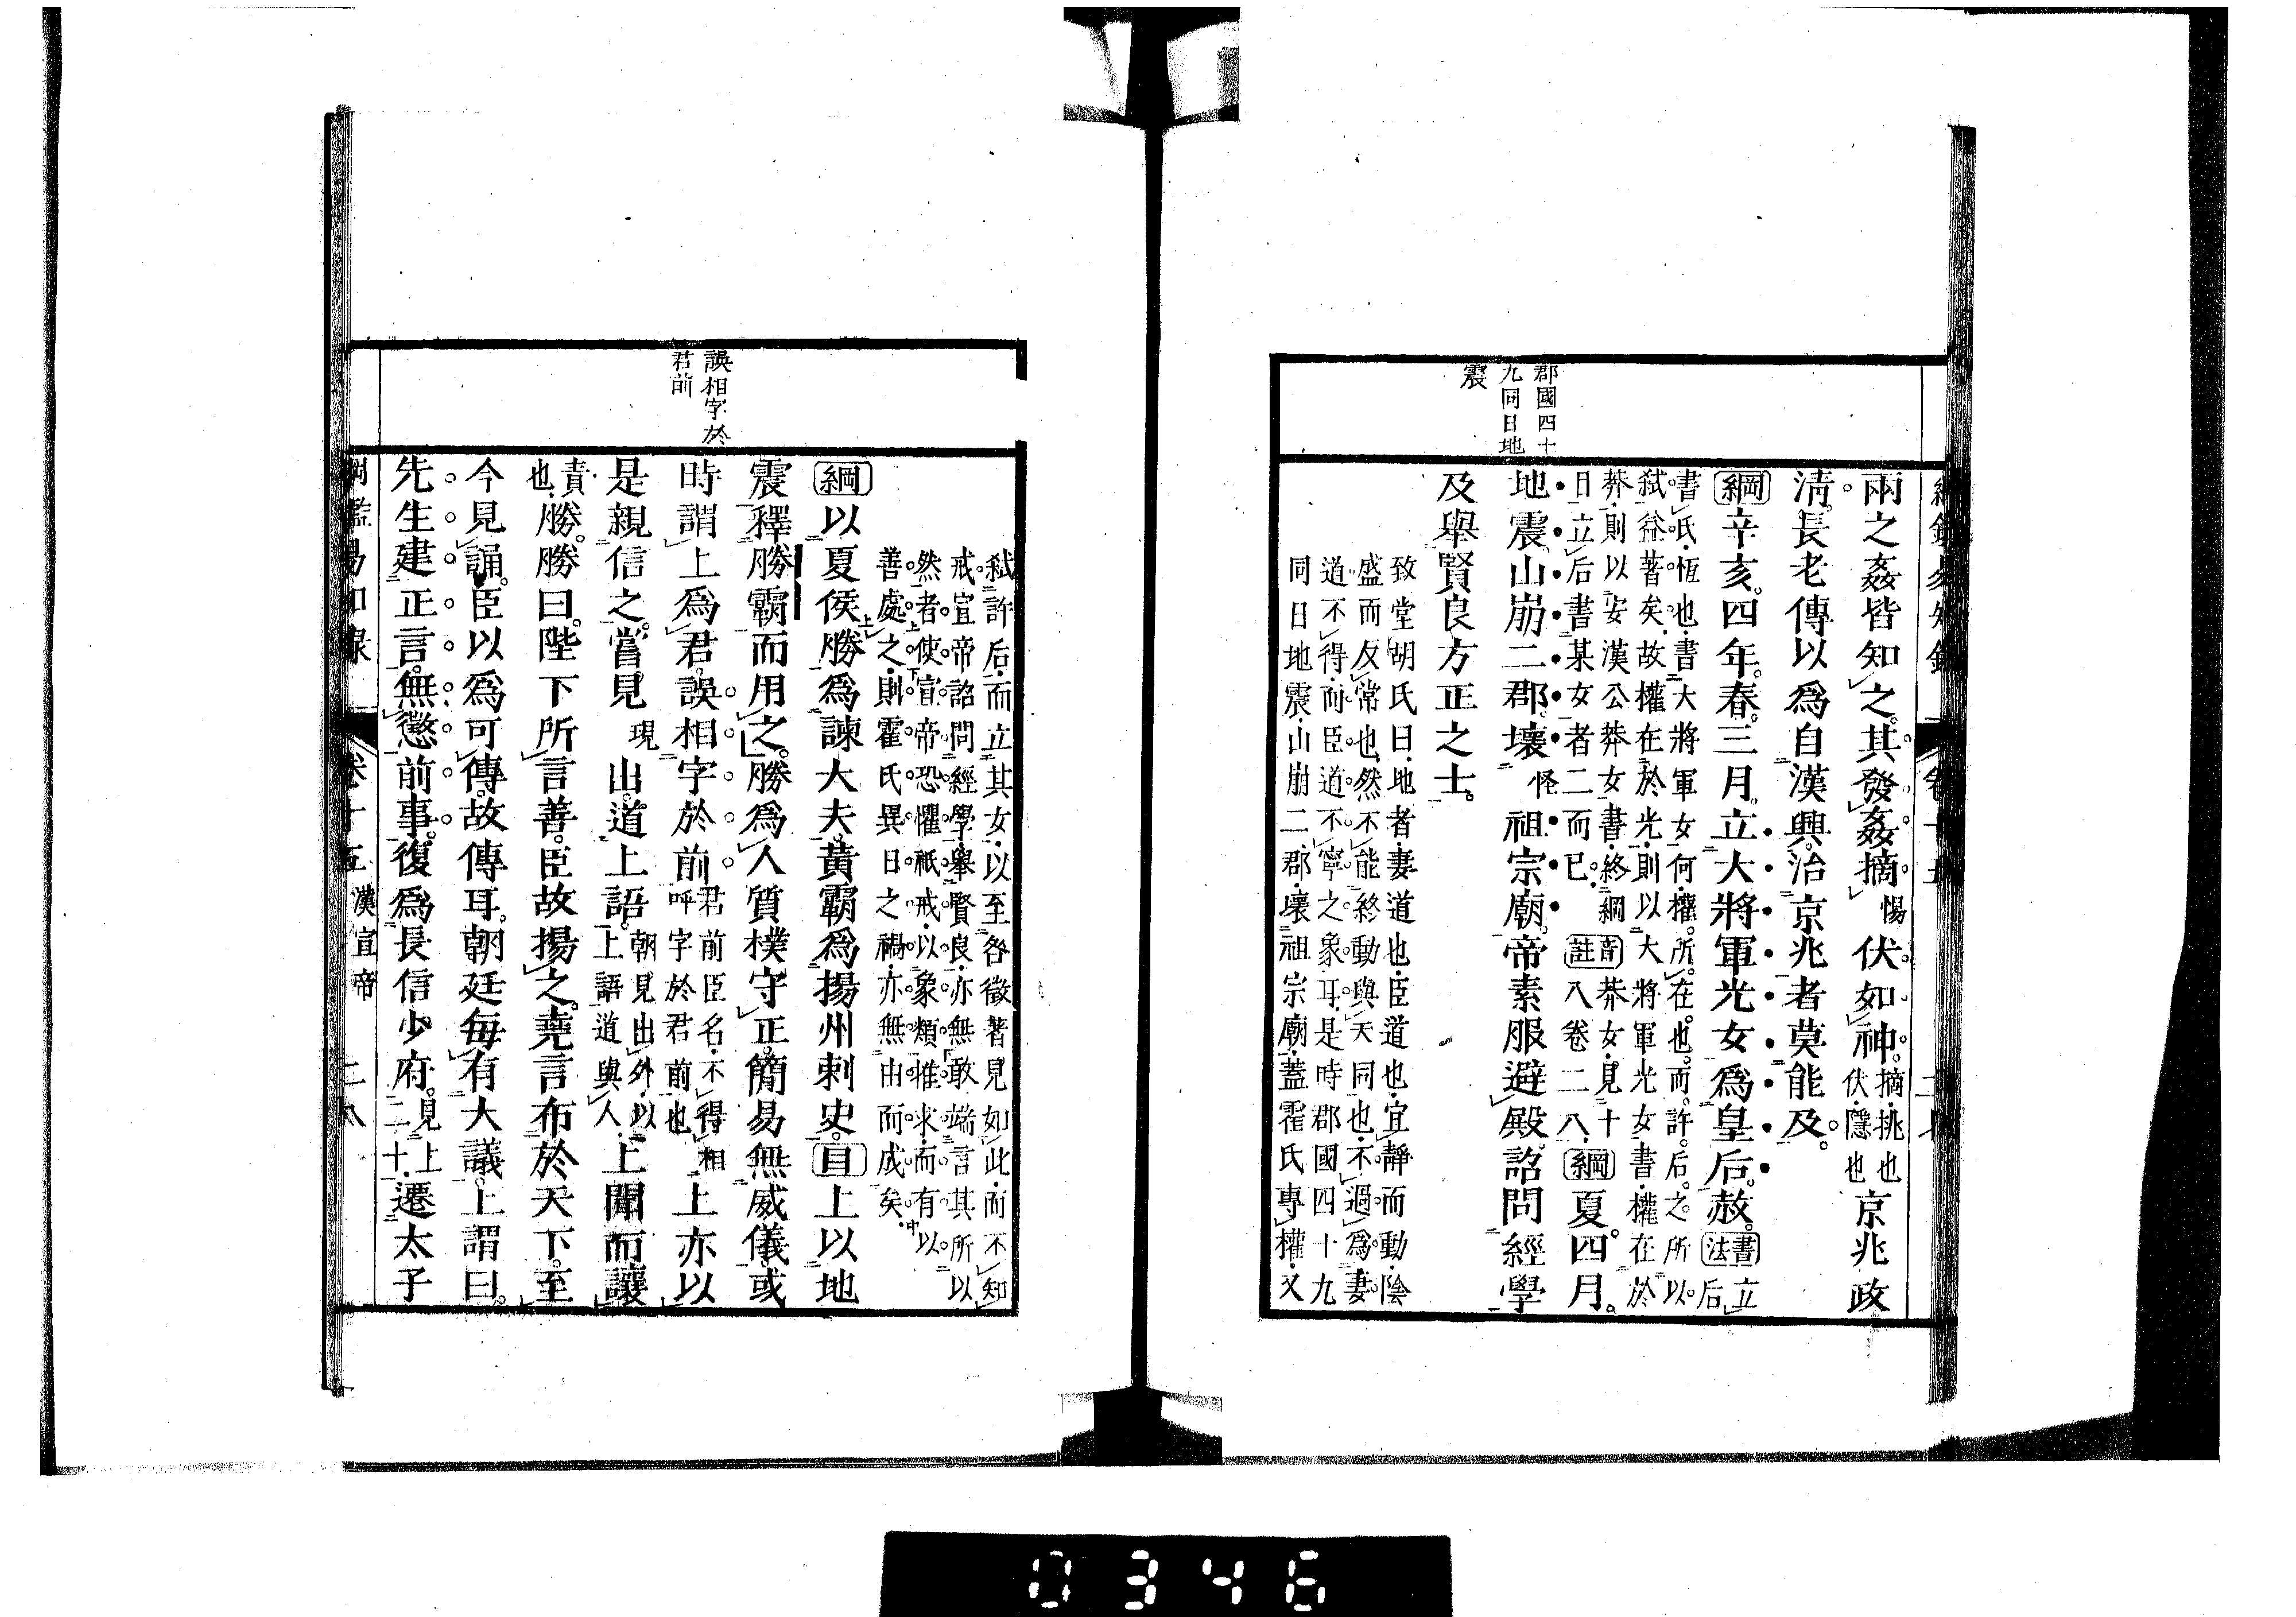 郡國四十
九同日地
震
兩之姦皆知之其發姦摘惕伏如神摘挑也伏隱也京兆政
淸長老傳以爲自漢興治京兆者莫能及
綱辛亥四年春三月立大將軍光女爲皇后赦書法立后
書氏恆也書大將軍女何權所在也而許后之所以
弑益著矣故權在於光則以大將軍光女書權在於
莽則以安漢公莽女書終綱目立后書某女者二而已
註莽女見十八卷二八綱夏四月
地震山崩二郡壞怪祖宗廟帝素服避殿詔問經學
及舉賢良方正之士
致堂胡氏曰地者妻道也臣道也宜靜而動陰
盛而反常也然不能終動與天同也不過爲妻
道不得而臣道不寧之象耳是時郡國四十九
同日地震山崩二郡壞祖宗廟蓋霍氏專權又
弑許后而立其女以至咎徵著見如此而不知
戒宣帝詔問經學舉賢良亦無敢端言其所以
然者使宣帝恐懼祇戒以象類推求而有以
善處之則霍氏異日之禍亦無由而成矣
誤相字於
君前
綱以夏侯勝爲諫大夫黃霸爲揚州刺史目上以地
震釋勝霸而用之勝爲人質樸守正簡易無威儀或
時謂上爲君誤相字於前君前臣名不得相呼字於君前也上亦以
是親信之嘗見現出道上語朝見出外以上語道與人上聞而讓
責也勝勝曰陛下所言善臣故揚之堯言布於天下至
今見誦臣以爲可傳故傳耳朝廷每有大議上謂曰
先生建正言無懲前事復爲長信少府見上二十遷太子
綱鑑易知錄 卷十五 漢宣帝 二八
0346